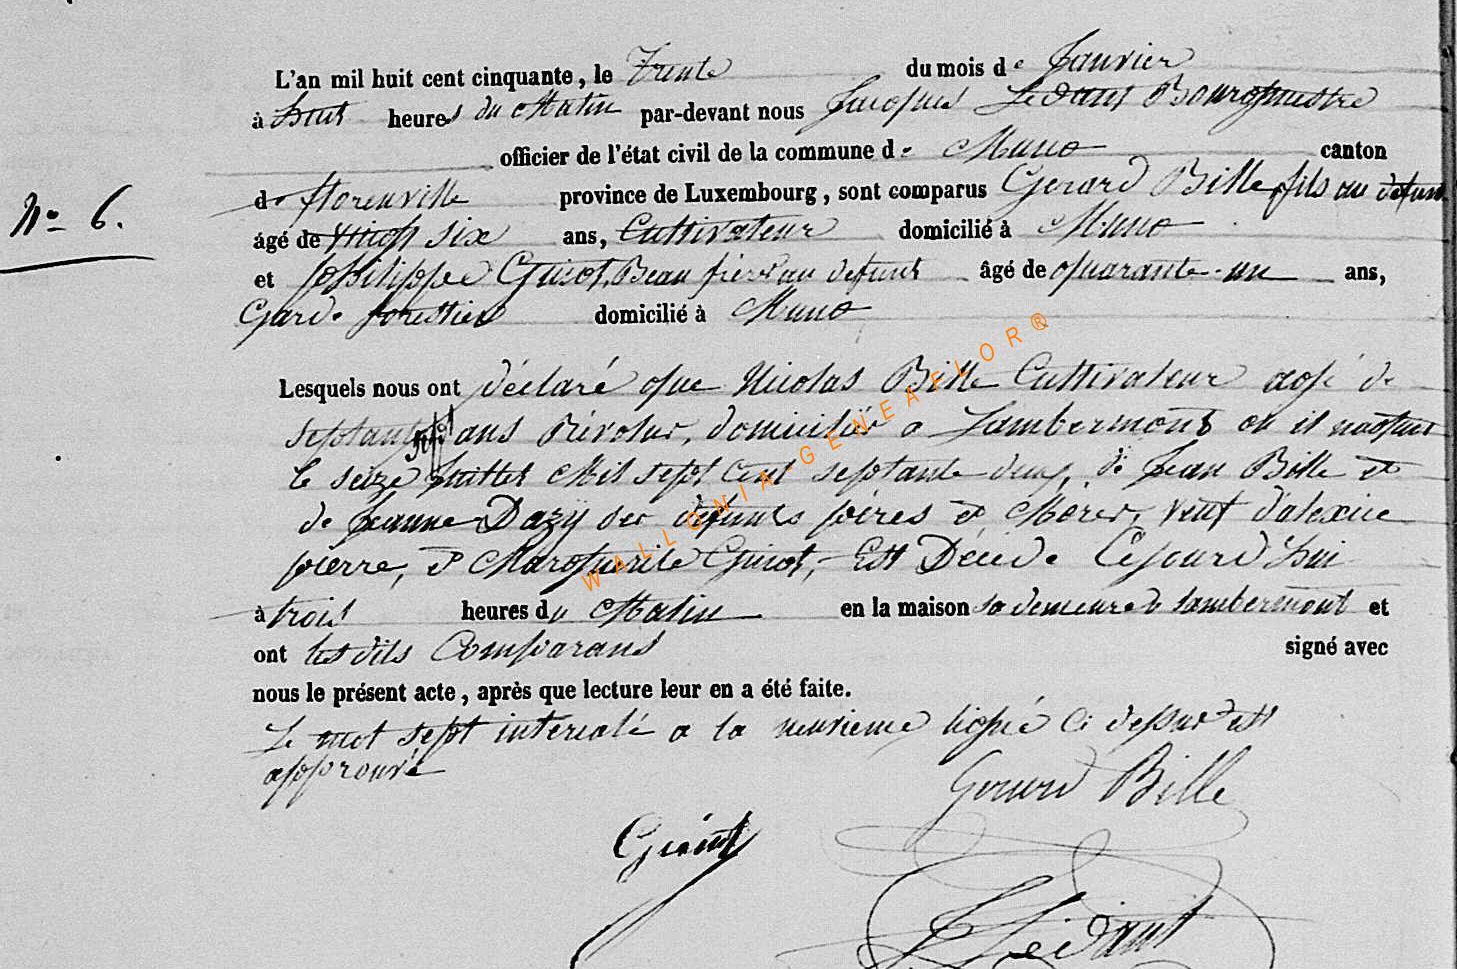 L'an mil huit cent cinquante, le Trente du mois de Janvier
à huit heures du Matin par-devant nous Jacques Ledant Bourgmestre
officier de l'état civil de la commune de Muno canton
de florenville province de Luxembourg, sont comparus Gerard Bille, fils au defunt
N° 6.
âgé de vingt six ans, Cultivateur domicilié à Muno
et philippe Guiot, Beau frère au defunt âgé de quarante-un ans,
Garde forestier domicilié à Muno
Lesquels nous ont déclaré que Nicolas Bille Cultivateur agé de
septante sept ans Révolus, domicilié a Lambermont ou il naquit
le seize Juillet Mil sept cent septante deux, de Jean Bille et
de Jeanne Dazÿ ses défunts pères et Mères, veuf d'alexise
pierre, et Marguerite Guiot, Est Décédé Cejourd'hui
à trois heures du Matin en la maison sa demeure à Lambermont et
ont lesdits Comparans signé avec
nous le présent acte, après que lecture leur en a été faite.
Le mot sept intercalé a la neuvieme ligne Ci dessus est
approuvé
Gerard Bille
Guiot
Ledant
WALLONIA-GENEAFLOR®